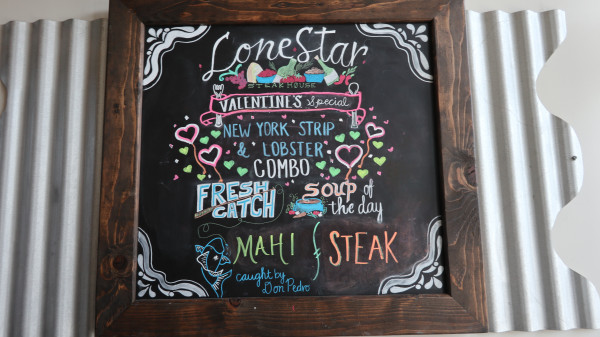 Lone Star
STEAKHOUSE
VALENTINE'S Special
NEW YORK STRIP
& LOBSTER
COMBO
FRESH
CATCH
SOUP of
the day
MAHI
STEAK
caught by
Don Pedro